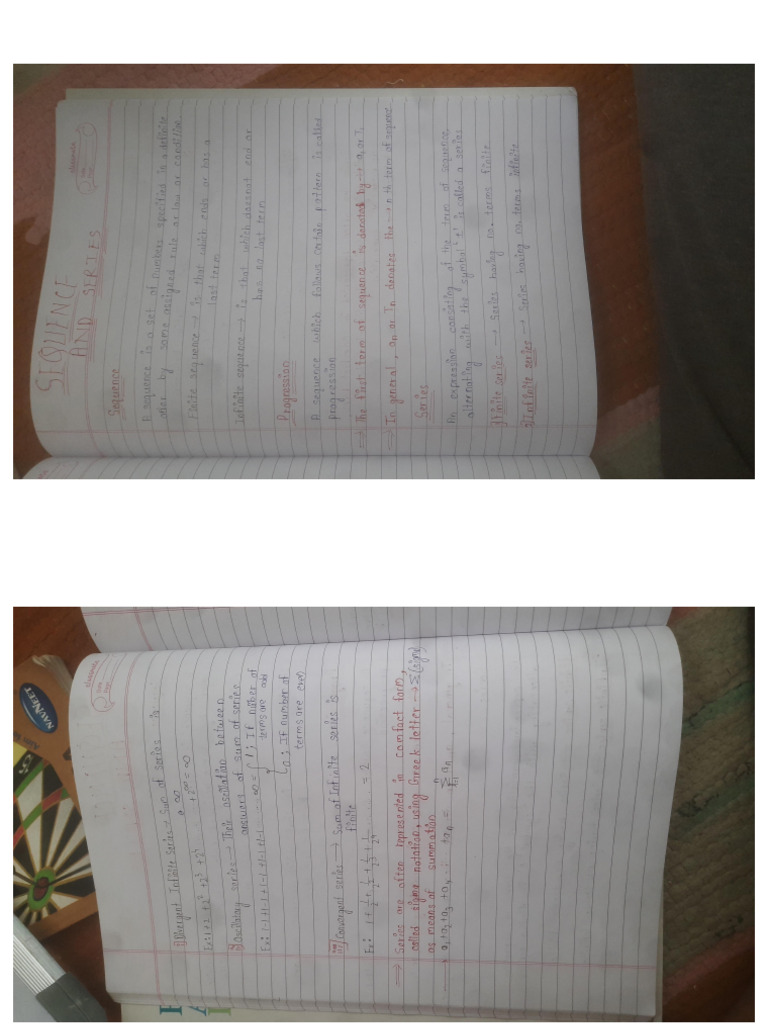 SEQUENCE
AND SERIES
Sequence
A sequence is a set of numbers specified in a definite
order by some assigned rule or law or condition.
Finite sequence → is that which ends or has a
last term
Infinite sequence → is that which doesnot end or
has no last term
Progression
A sequence which follows certain pattern is called
progression
⇒ The first term of sequence is denoted by → a, or T,
⇒ In general, an or Tn denotes the → nth term of sequence
Series
An expression consisting of the term of sequence,
alternating with the symbol '+' is called a series
Finite series → Series having no. terms finite
Infinite series → Series having no. terms infinite
NAVNEET
Divergent Infinite Series → Sum of series is
∞
Ex: 1+2+2²+2³+2⁴ +2^∞ = ∞
Oscillatory series → Their oscillation between
answers of sum of series
Ex: 1-1+1-1+1-1+1-1+1-1 ..... ∞ = { 1 ; If number of
terms are odd
0 ; If number of
terms are even
Convergent series → Sum of Infinite series is
finite
Ex: 1 + 1/2 + 1/2² + 1/2³ + 1/2⁴ ........ = 2
⇒ Series are often represented in comfact form,
called sigma notation, using Greek letter → Σ(sigma)
as means of summation
→ a₁+a₂+a₃+a₄ ... +an =